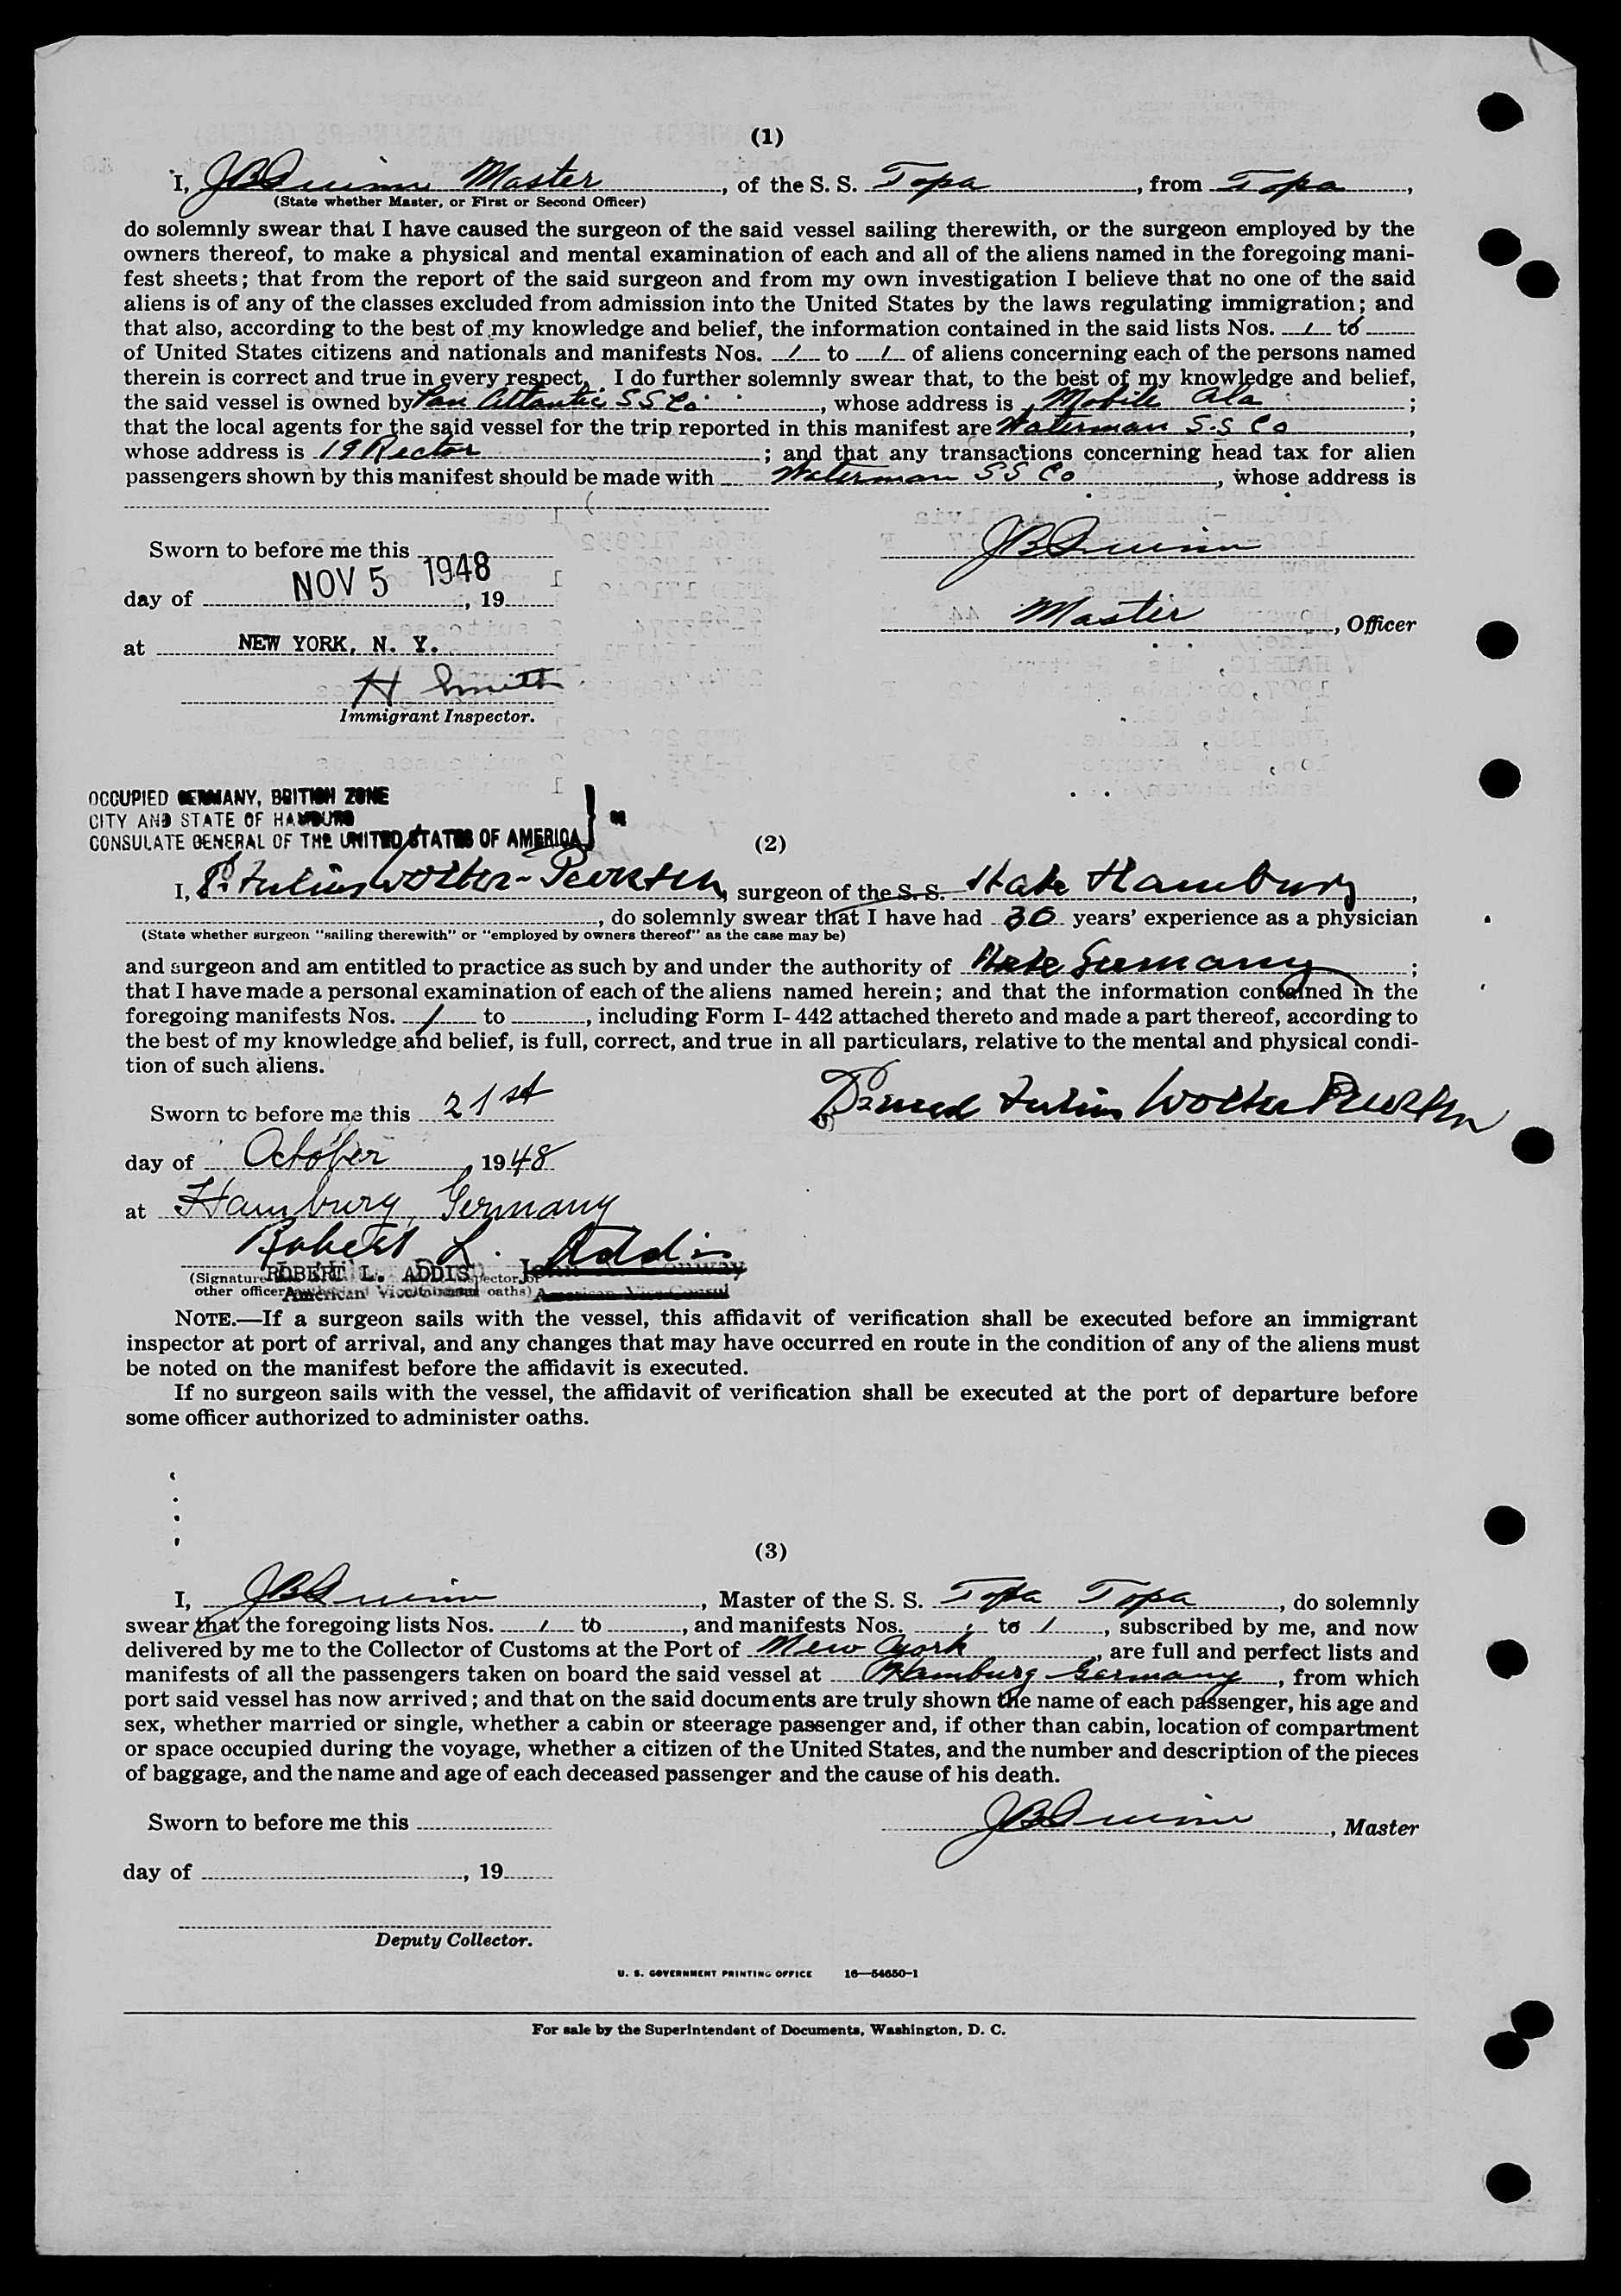 (1)
I, J B Quinn Master, of the S. S. Topa, from Topa,
(State whether Master, or First or Second Officer)
do solemnly swear that I have caused the surgeon of the said vessel sailing therewith, or the surgeon employed by the
owners thereof, to make a physical and mental examination of each and all of the aliens named in the foregoing mani-
fest sheets; that from the report of the said surgeon and from my own investigation I believe that no one of the said
aliens is of any of the classes excluded from admission into the United States by the laws regulating immigration; and
that also, according to the best of my knowledge and belief, the information contained in the said lists Nos. 1 to
of United States citizens and nationals and manifests Nos. 1 to 1 of aliens concerning each of the persons named
therein is correct and true in every respect. I do further solemnly swear that, to the best of my knowledge and belief,
the said vessel is owned by Pan Atlantic S S Co, whose address is Mobile Ala;
that the local agents for the said vessel for the trip reported in this manifest are Waterman S.S Co,
whose address is 19 Rector; and that any transactions concerning head tax for alien
passengers shown by this manifest should be made with Waterman S S Co, whose address is
J B Quinn
Sworn to before me this
day of NOV 5 1948, 19
Master, Officer
at NEW YORK, N. Y.
H Smith
Immigrant Inspector.
OCCUPIED GERMANY, BRITISH ZONE
CITY AND STATE OF HAMBURG
CONSULATE GENERAL OF THE UNITED STATES OF AMERICA
(2)
I, Julius Wolter, surgeon of the S. S. State Hamburg,
, do solemnly swear that I have had 30 years' experience as a physician
(State whether surgeon "sailing therewith" or "employed by owners thereof" as the case may be)
and surgeon and am entitled to practice as such by and under the authority of State Germany;
that I have made a personal examination of each of the aliens named herein; and that the information contained in the
foregoing manifests Nos. 1 to , including Form I-442 attached thereto and made a part thereof, according to
the best of my knowledge and belief, is full, correct, and true in all particulars, relative to the mental and physical condi-
tion of such aliens.
Sworn to before me this 21st
Julius Wolter
day of October, 1948
at Hamburg, Germany
Robert L. Addis
(Signature ROBERT L. ADDIS
other officer American Vice Consul oaths)
NOTE.—If a surgeon sails with the vessel, this affidavit of verification shall be executed before an immigrant
inspector at port of arrival, and any changes that may have occurred en route in the condition of any of the aliens must
be noted on the manifest before the affidavit is executed.
If no surgeon sails with the vessel, the affidavit of verification shall be executed at the port of departure before
some officer authorized to administer oaths.
(3)
I, J B Quinn, Master of the S. S. Topa Topa, do solemnly
swear that the foregoing lists Nos. 1 to , and manifests Nos. 1 to 1, subscribed by me, and now
delivered by me to the Collector of Customs at the Port of New York, are full and perfect lists and
manifests of all the passengers taken on board the said vessel at Hamburg Germany, from which
port said vessel has now arrived; and that on the said documents are truly shown the name of each passenger, his age and
sex, whether married or single, whether a cabin or steerage passenger and, if other than cabin, location of compartment
or space occupied during the voyage, whether a citizen of the United States, and the number and description of the pieces
of baggage, and the name and age of each deceased passenger and the cause of his death.
Sworn to before me this
J B Quinn, Master
day of , 19
Deputy Collector.
U. S. GOVERNMENT PRINTING OFFICE 16—54650-1
For sale by the Superintendent of Documents, Washington, D. C.